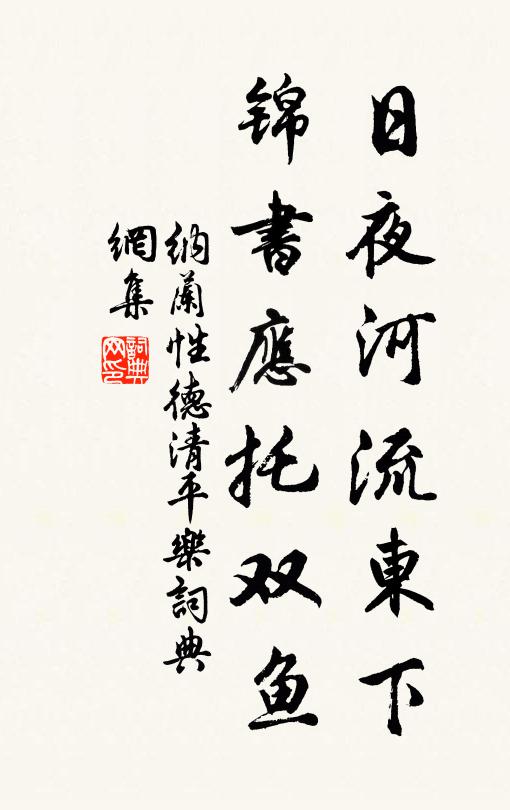 日夜河流東下
锦書應托双鱼
納蘭性德清平樂詞典
網集
詞典
网印